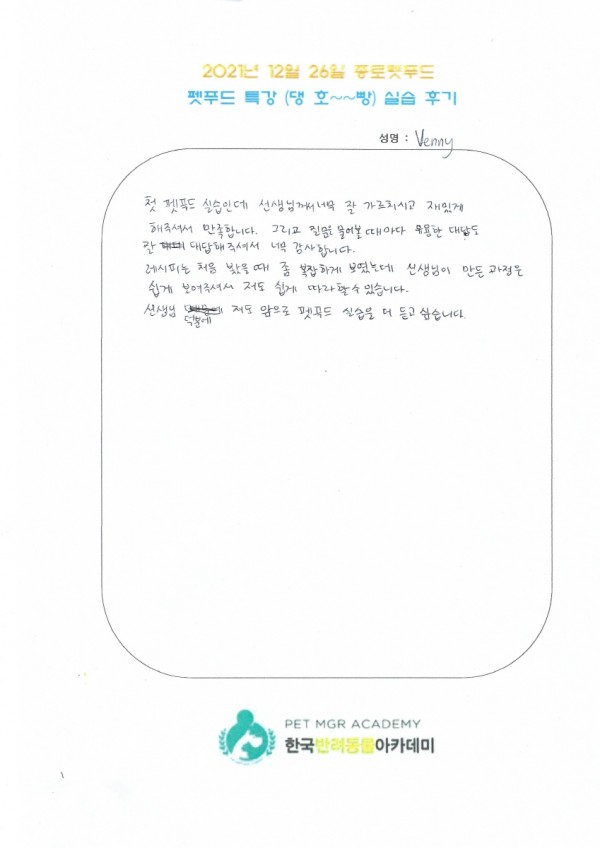 2021년 12월 26일 종로펫푸드
펫푸드 특강 (댕 호~~빵) 실습 후기
성명 : Venny
첫 펫푸드 실습인데 선생님께서 너무 잘 가르치시고 재밌게
해주셔서 만족합니다. 그리고 질문 물어볼 때마다 유용한 대답도
잘 대답해주셔서 너무 감사합니다.
레시피는 처음 봤을 때 좀 복잡하게 보였는데 선생님이 만든 과정은
쉽게 보여주셔서 저도 쉽게 따라할 수 있습니다.
선생님 덕분에 저도 앞으로 펫푸드 실습을 더 듣고 싶습니다.
PET MGR ACADEMY
한국반려동물아카데미